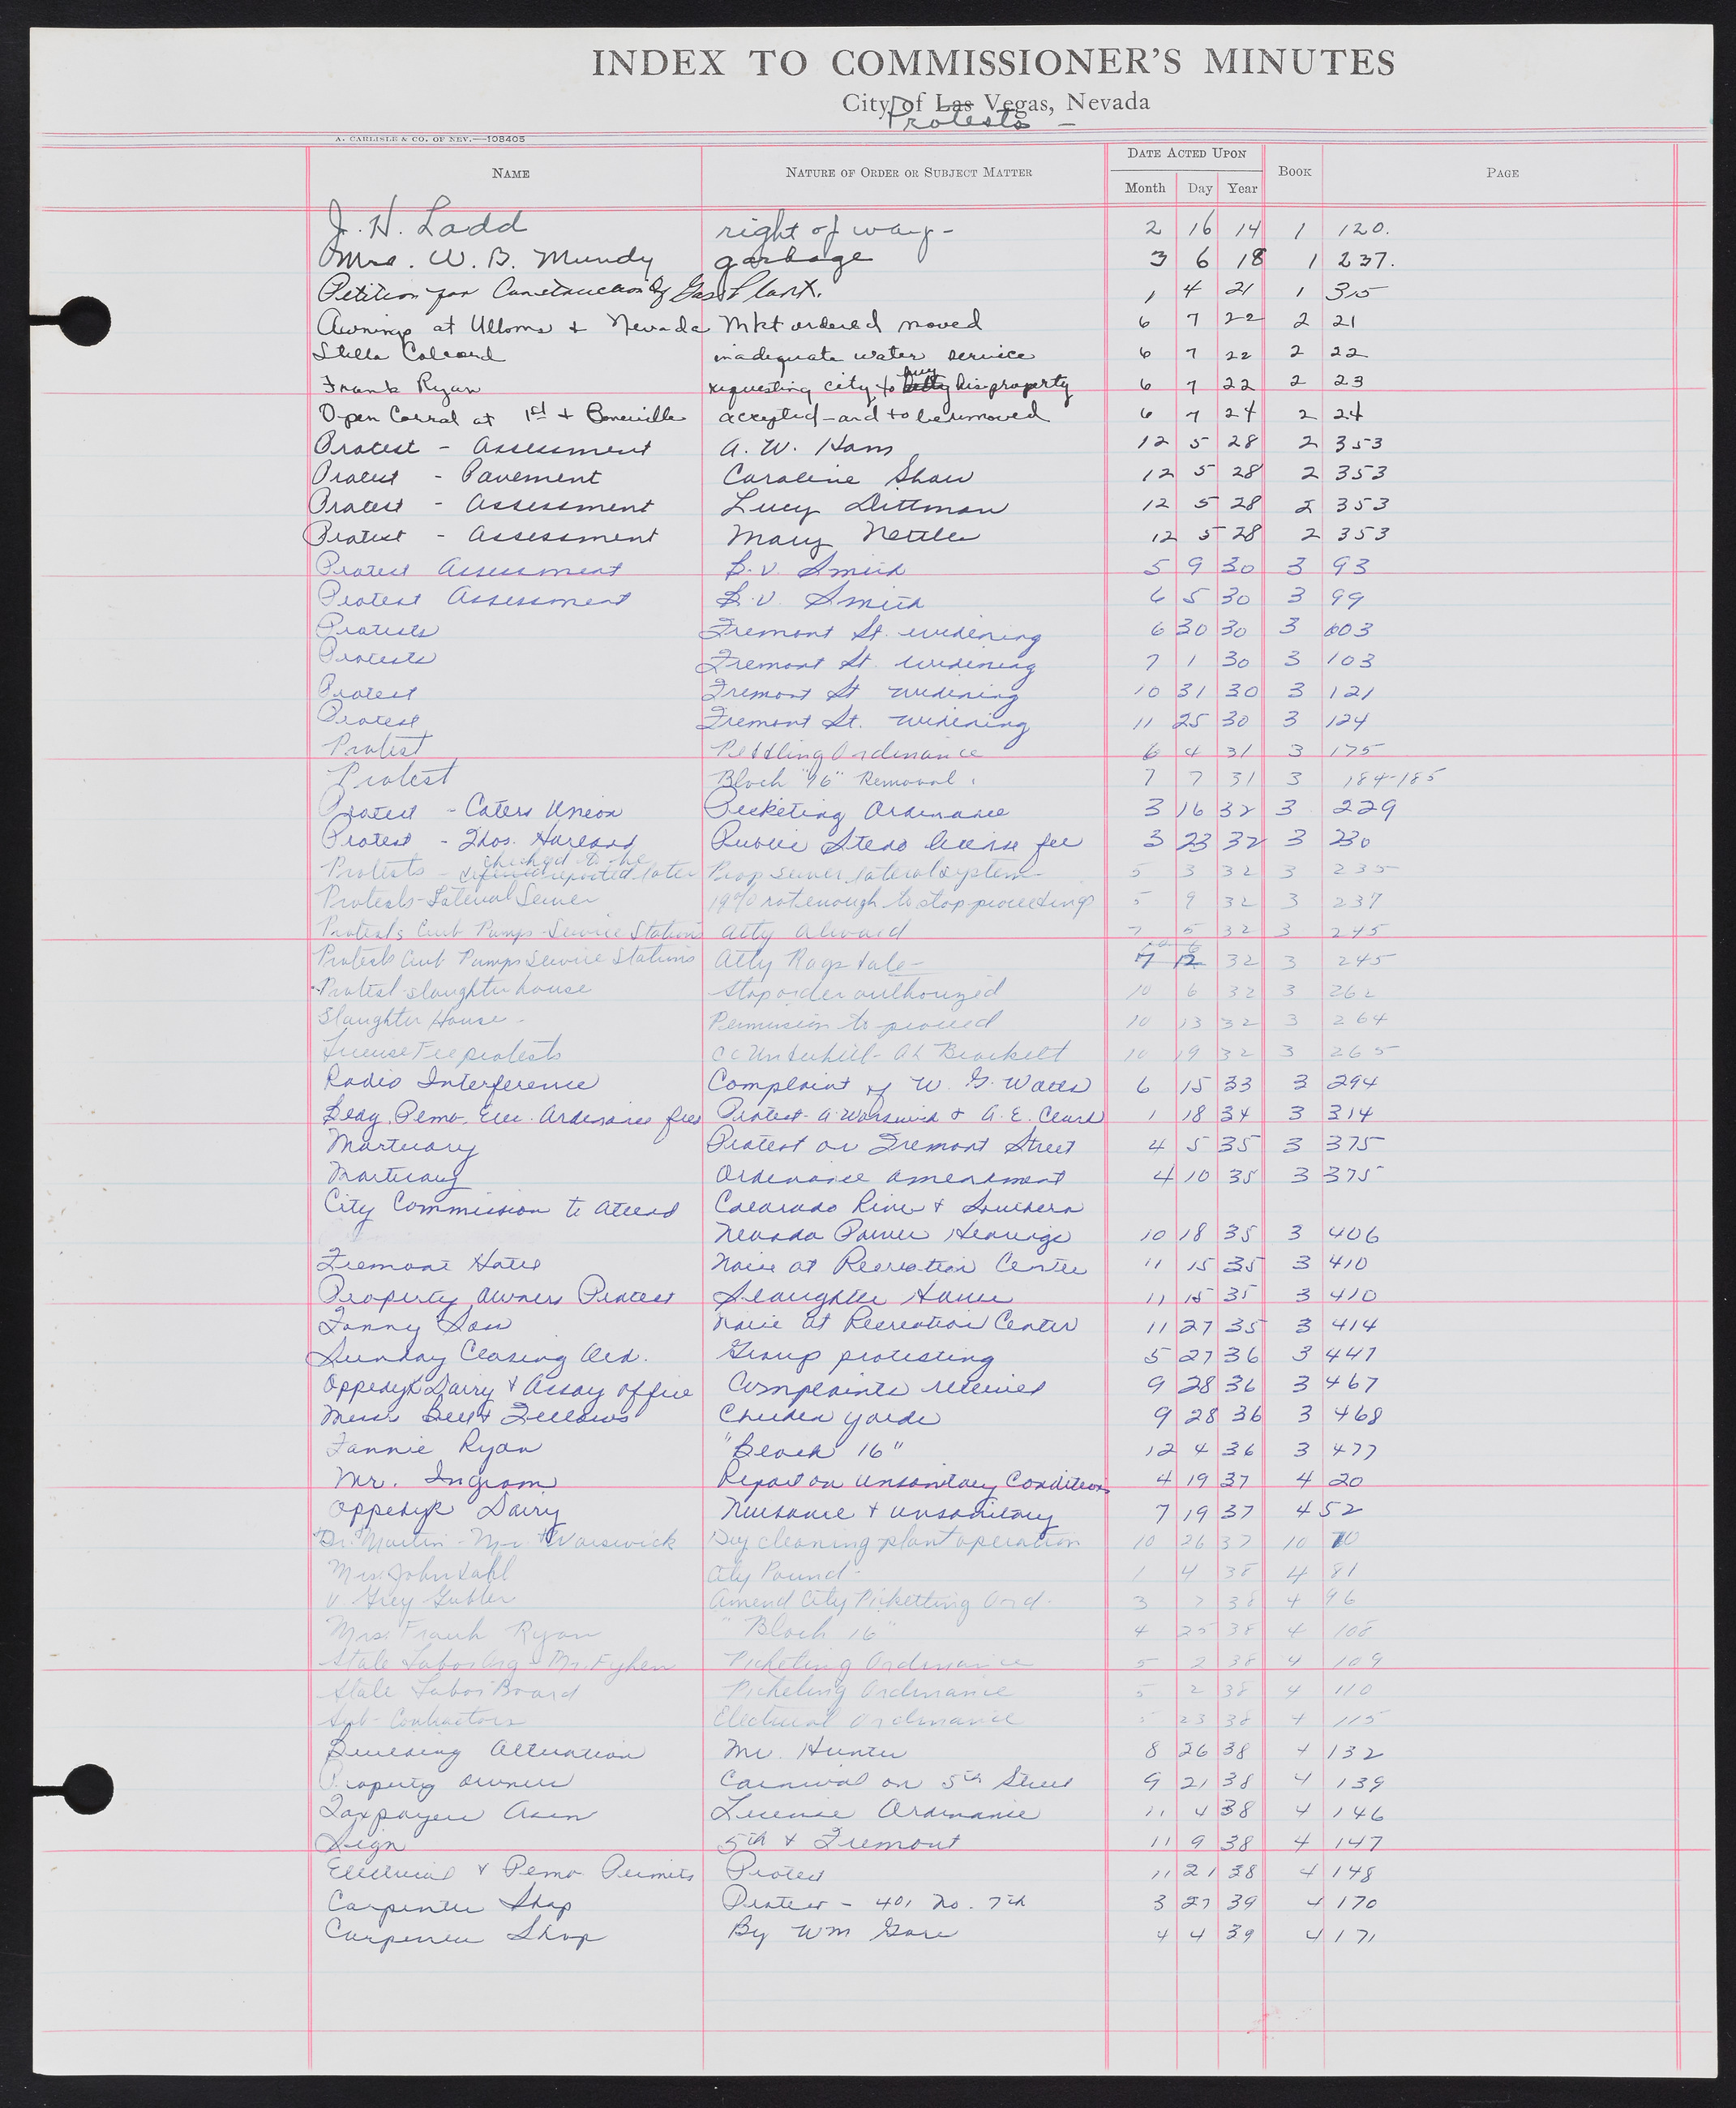 INDEX TO COMMISSIONER'S MINUTES
City of Las Vegas, Nevada
Protests —
A. CARLISLE & CO. OF NEV.—108405
NAME NATURE OF ORDER OR SUBJECT MATTER DATE ACTED UPON BOOK PAGE
Month Day Year
J. H. Ladd right of way - 2 16 14 1 120.
Mrs. W. B. Mundy garbage 3 6 18 1 237.
Petition for Construction of Gas Plant. 1 4 21 1 315
Awnings at Ulloms & Nevada Mkt ordered moved 6 7 22 2 21
Stella Colcord inadequate water service 6 7 22 2 22
Frank Ryan requesting city to buy his property 6 7 22 2 23
Open Corral at 1st & Boneville accepted - and to be removed 6 7 24 2 24
Protest - Assessment A. W. Ham 12 5 28 2 353
Protest - Pavement Caroline Shaw 12 5 28 2 353
Protest - Assessment Lucy Dittman 12 5 28 2 353
Protest - Assessment Mary Nettle 12 5 28 2 353
Protest Assessment B. V. Smith 5 9 30 3 93
Protest Assessment B. V. Smith 6 5 30 3 99
Protests Fremont St. widening 6 30 30 3 103
Protests Fremont St. widening 7 1 30 3 103
Protest Fremont St widening 10 31 30 3 121
Protest Fremont St. widening 11 25 30 3 124
Protest Peddling Ordinance 6 4 31 3 175
Protest Block "16" Removal 7 7 31 3 184-185
Protest - Caters Union Picketing Ordinance 3 16 32 3 229
Protest - Thos. Harland Public Steno license fee 3 23 32 3 230
Protests - checked to be reported later Prop sewer lateral system 5 3 32 3 235
Protests - Lateral Sewer 19% not enough to stop proceedings 5 9 32 3 237
Protests Curb Pumps - Service Stations Atty Alward 7 5 32 3 245
Protests Curb Pumps Service Stations Atty Ragsdale - 7 12 32 3 245
Protest - slaughter house Stop order authorized 10 6 32 3 262
Slaughter House - Permission to proceed 10 13 32 3 264
License Fee protests CC Underhill - Al Brackett 10 19 32 3 265
Radio Interference Complaint of W. G. Watts 6 15 33 3 294
Bldg. Plmb. Elec. Ordinance fees Protest - A. Warswick & A. E. Clark 1 18 34 3 314
Mortuary Protest on Fremont Street 4 5 35 3 375
Mortuary Ordinance amendment 4 10 35 3 375
City Commission to attend Colorado River & Southern
Nevada Power Hearings 10 18 35 3 406
Fremont Hotel Noise at Recreation Center 11 15 35 3 410
Property Owners Protest Slaughter House 11 15 35 3 410
Fanny Soss Noise at Recreation Center 11 27 35 3 414
Sunday Closing Ord. Group protesting 5 27 36 3 447
Oppedyk Dairy & Assay office Complaints received 9 28 36 3 467
Messrs Bell & Fellows Chicken yards 9 28 36 3 468
Fannie Ryan "Block 16" 12 4 36 3 477
Mr. Ingram Report on Unsanitary Conditions 4 19 37 4 20
Oppedyk Dairy Nuisance & unsanitary 7 19 37 4 52
Dr. Martin - Mr. Warswick Dry cleaning plant operation 10 26 37 10 70
Mrs. John Dahl City Pound - 1 4 38 4 81
V Grey Gubler Amend City Picketting Ord. 3 7 38 4 96
Mrs. Frank Ryan "Block 16" 4 25 38 4 108
State Labor Org - Mr. Fyhen Picketing Ordinance 5 2 38 4 109
State Labor Board Picketing Ordinance 5 2 38 4 110
Sub-Contractors Electrical Ordinance 5 23 38 4 115
Building Alteration Mr. Hunter 8 26 38 4 132
Property owners Carnival on 5th Street 9 21 38 4 139
Taxpayers Assn License Ordinance 11 4 38 4 146
Sign 5th & Fremont 11 9 38 4 147
Electrical & Plmb Permits Protest 11 21 38 4 148
Carpenter Shop Protest - 401 No. 7th 3 27 39 4 170
Carpenter Shop By Wm Gore 4 4 39 4 171